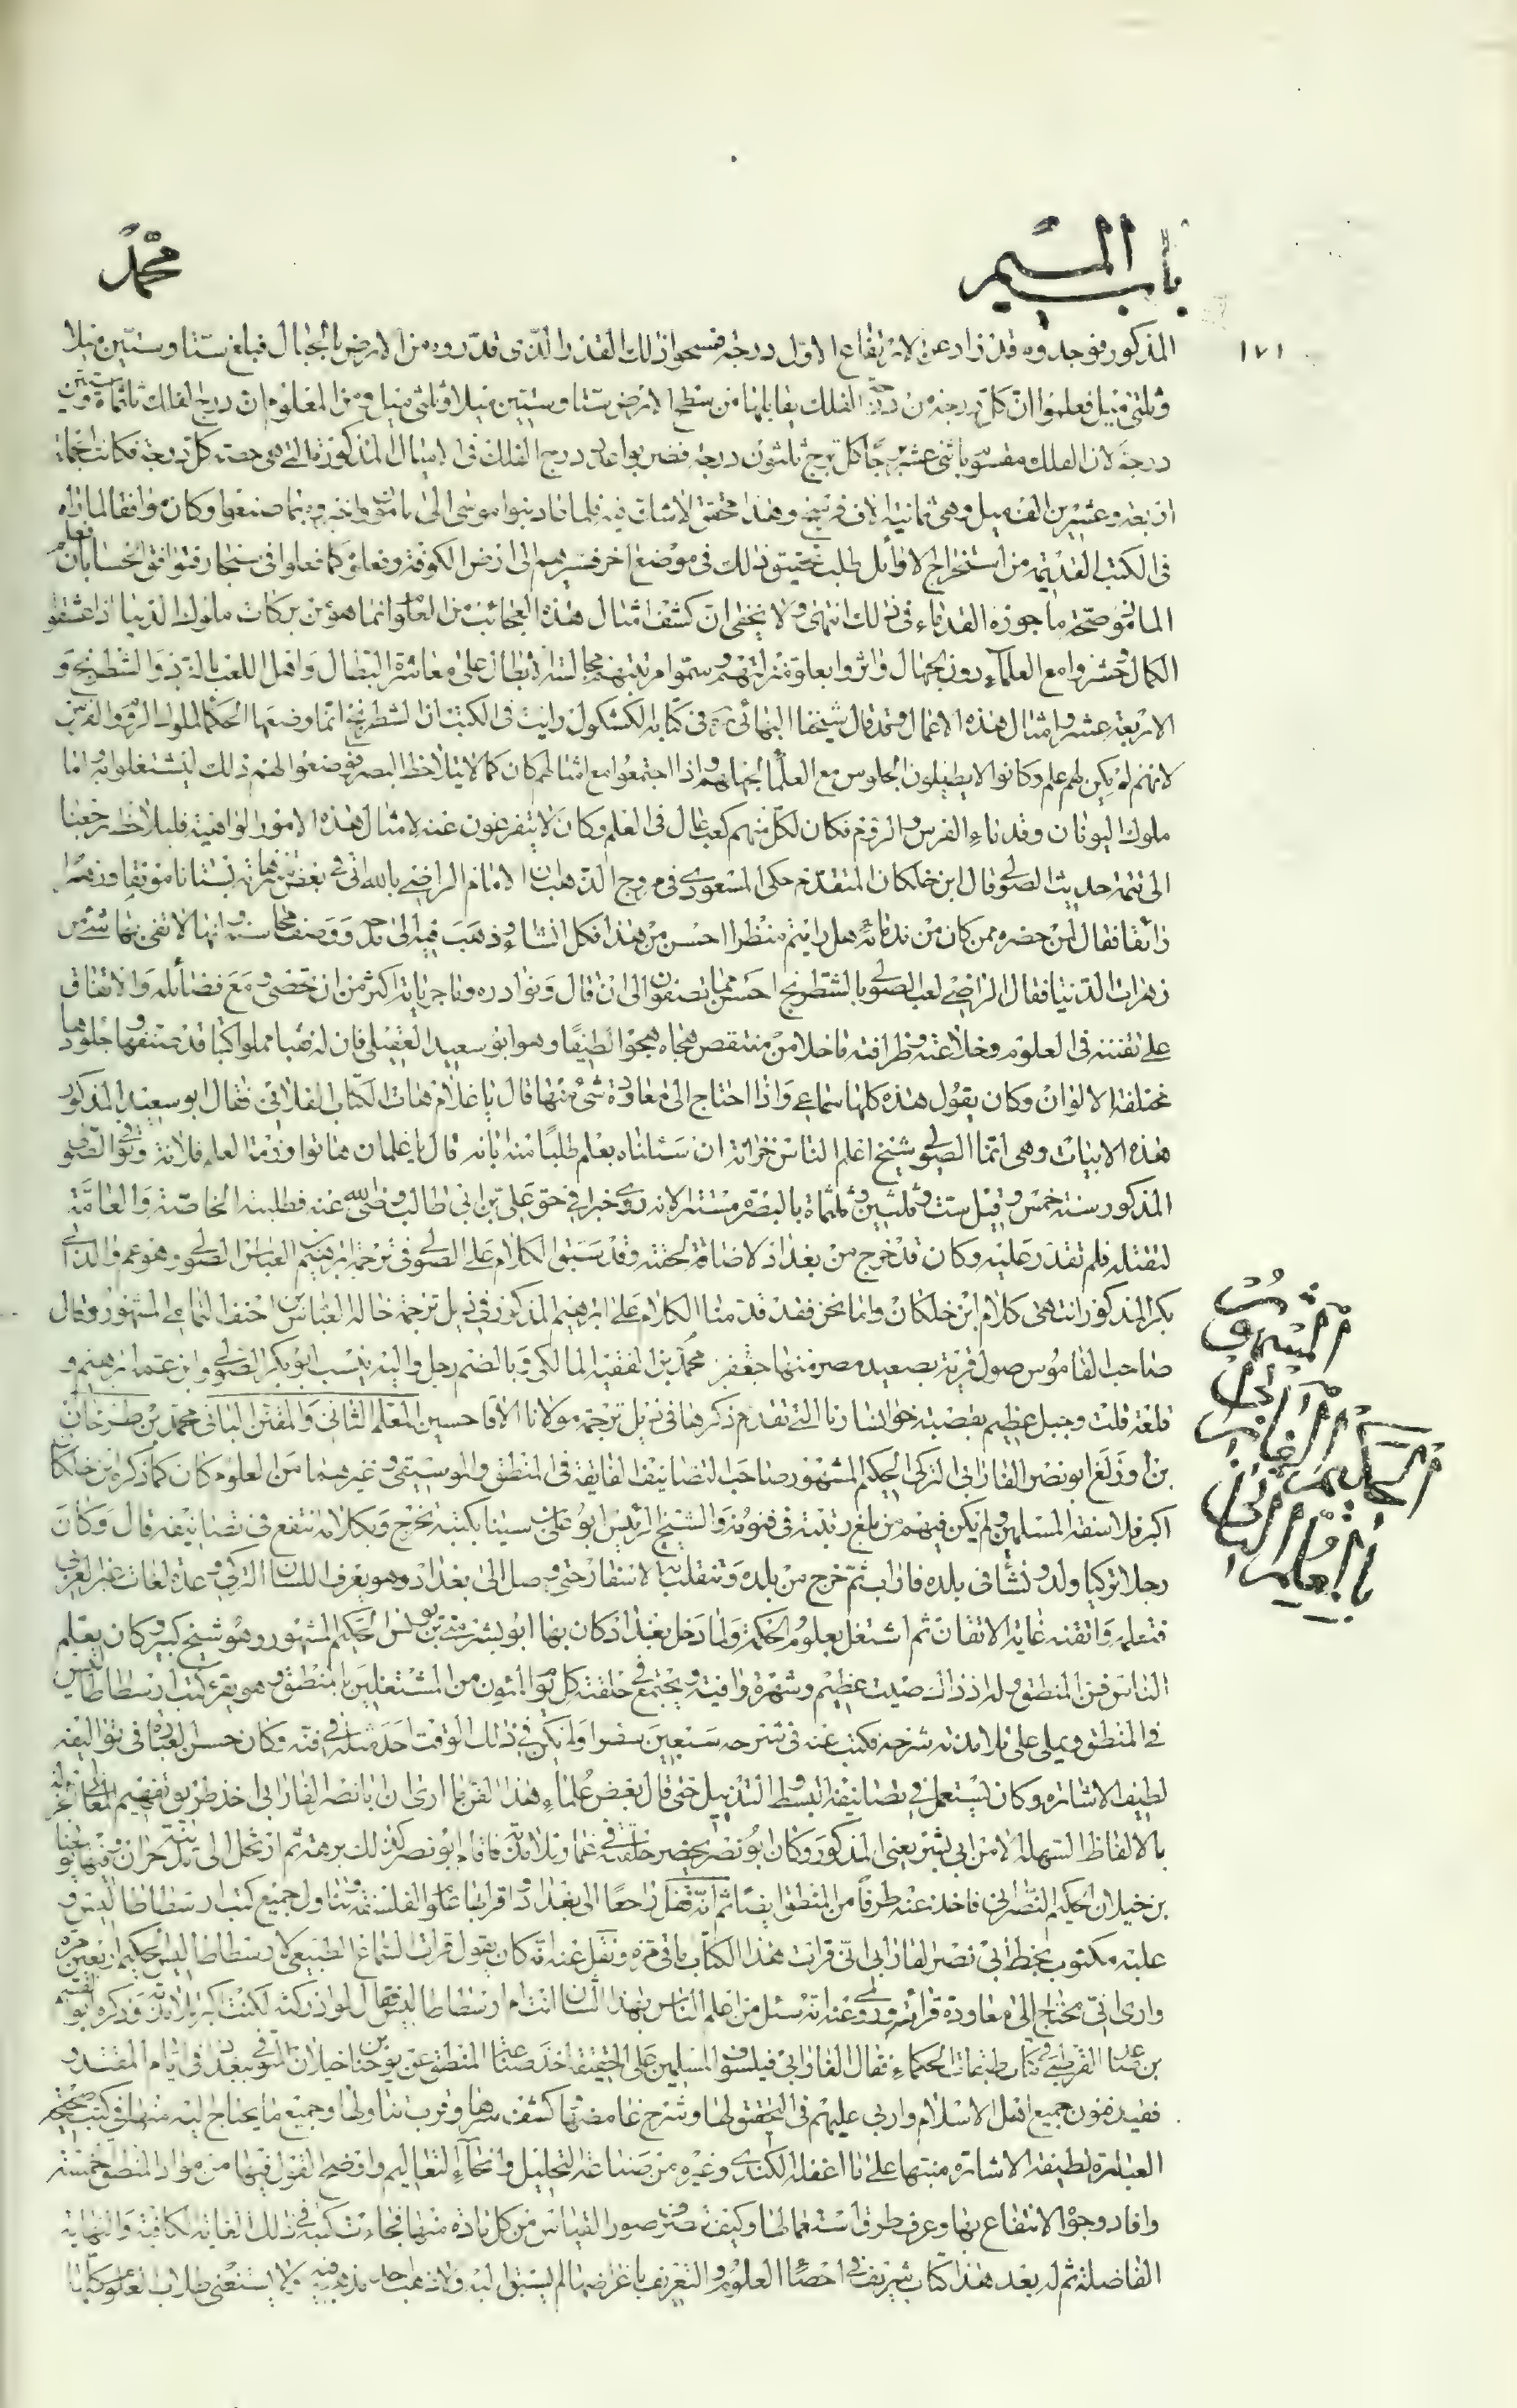 باب الميم
محمد
١٧١
المذكور فوجدوه قد زاد عن الارتفاع الاول درجة فمسحوا ذلك القدر الذى قدروه من الارض بالحبال فبلغ ستا وستين ميلا
وثلثى ميل فعلموا ان كل درجة من درج الفلك يقابلها من سطح الارض ستا وستين ميلا وثلثى ميل ومن المعلوم ان درج الفلك ثلثمائة وستين
درجة لان الفلك مقسوم باثنى عشر برجا كل برج ثلثون درجة فضربوا عدد درج الفلك فى الاميال المذكورة التى هى حصة كل درجة فكانت الجملة
اربعة وعشرين الف ميل وهى ثمانية الاف فرسخ وهذا محقق لا شك فيه فلما عاد بنو موسى الى المأمون واخبروه بما صنعوا وكان موافقا لما راه
فى الكتب القديمة من استخراج الاوائل طلب تحقيق ذلك فى موضع اخر فسيرهم الى ارض الكوفة وفعلوا كما فعلوا فى سنجار فتوافق الحسابان فعلم
المأمون صحة ما حرره القدماء فى ذلك انتهى ولا يخفى ان كشف امثال هذه العجائب من العلوم انما هو من بركات ملوك الدنيا اذا عشقوا
الكمال وحشروا مع العلماء دون الجهال واثروا بعلو منزلتهم وسمو مرتبتهم مجالسة الابطال على معاشرة البطال وافعل اللعب بالنرد والشطرنج و
الاربعة عشر وامثال هذه الاعمال وقد قال شيخنا البهائى ره فى كتابه الكشكول رايت فى الكتب ان الشطرنج انما وضعها الحكماء لملوك الروم والفرس
لانهم لم يكن لهم علم وكانوا لا يطيقون الجلوس مع العلماء لجهلهم واذا اجتمعوا مع امثالهم كان كما لا يتلاحظ البصر فوضعوا لهم ذلك ليشتغلوا به واما
ملوك اليونان وقدماء الفرس والروم فكان لكل منهم كعب عال فى العلم وكان لا يتفرغون عنه لامثال هذه الامور الواهية فليلاحظ رجعنا
الى تتمة حديث الصولى وقال ابن خلكان المتقدم حكى المسعودى فى مروج الذهب ان الامام الراضى بالله اتى فى بعض منتزهاته بستانا مونقا وزهرا
رائقا فقال لمن حضره ممن كان من ندمائه هل رايتم منظرا احسن من هذا فكل اثنى وذهب فيه الى مدحه ووصف محاسنه وانها لا تفى بها شئ من
زهرات الدنيا فقال الراضى لعب الصولى بالشطرنج احسن مما تصفون الى ان قال ونوادره وماجرياته اكثر من ان تحصى ومع فضائله والاتفاق
على تفننه فى العلوم وخلاعته وظرافته ما خلا من منتقص هجاه هجوا لطيفا وهو ابو سعيد العقيلى فان له بيتا مملوا كتبا قد صففها وجلودها
مختلفة الالوان وكان يقول هذه كلها سماعى واذا احتاج الى معاودة شئ منها قال يا غلام هات الكتاب الفلانى فقال ابو سعيد المذكور
هذه الابيات وهى انما الصولى شيخ اعلم الناس خزانه ان سئلناه بعلم طلبا منه ابانه قال يا غلمان هاتوا رزمة العلم فلانه وتوفى الصولى
المذكور سنة خمس وقيل ست وثلثين وثلثمائة بالبصرة مستترا لانه روى خبرا فى حق على بن ابى طالب رضى الله عنه فطلبته الخاصة والعامة
لتقتله فلم تقدر عليه وكان قد خرج من بغداد لاضاقة لحقته وقد سبق الكلام على الصولى فى ترجمة ابرهيم بن العباس الصولى وهو عم والد ابى
بكر المذكور انتهى كلام ابن خلكان واما نحن فقد قدمنا الكلام على ابرهيم المذكور فى ذيل ترجمة خاله العباس بن احنف الشاعر المشهور وقال
صاحب القاموس صول قرية بصعيد مصر منها جعفر محمد بن الفقيه المالكى وبالضم رجل واليه ينسب ابو بكر الصولى وابن عمه ابرهيم و
قلعة قلت وجبل عظيم بقصبة خوانسارنا التى تقدم ذكرها فى ذيل ترجمة مولانا الاقا حسين المعلم الثانى والمفتن البانى محمد بن طرخان
بن اوزلغ ابو نصر الفارابى التركى الحكيم المشهور صاحب التصانيف الفايقة فى المنطق والموسيقى وغيرهما من العلوم كان كما ذكره ابن خلكان
اكبر فلاسفة المسلمين ولم يكن فيهم من بلغ رتبته فى فنونه والشيخ الرئيس ابو على بن سينا بكتبه تخرج وبكلامه انتفع فى تصانيفه قال وكان
رجلا تركيا ولد ونشأ فى بلده فاراب ثم خرج من بلده وتنقلت به الاسفار حتى وصل الى بغداد وهو يعرف اللسان التركى وعدة لغات غير العربى
فتعلمه واتقنه غاية الاتقان ثم اشتغل بعلوم الحكمة ولما دخل بغداد كان بها ابو بشر متى بن يونس الحكيم المشهور وهو شيخ كبير وكان يعلم
الناس فن المنطق وله اذ ذاك صيت عظيم وشهرة وافية ويجتمع فى حلقته كل يوم المئون من المشتغلين بالمنطق وهو يقرء كتاب ارسطاطاليس
فى المنطق ويملى على تلامذته شرحه فكتب عنه فى شرحه سبعين سفرا ولم يكن فى ذلك الوقت احد مثله فى فنه وكان حسن العبارة فى تواليفه
لطيف الاشارة وكان يستعمل فى تصانيفه البسط والتذييل حتى قال بعض علماء هذا الفن ما ارى ان ابا نصر الفارابى اخذ طريق تفهيم المعانى الجزلة
بالالفاظ السهلة الا من ابى بشر يعنى المذكور وكان ابو نصر يحضر حلقته فى غمار تلامذته فاقام ابو نصر كذلك برهة ثم ارتحل الى مدينة حران وفيها يوحنا
بن خيلان الحكيم النصرانى فاخذ عنه طرفا من المنطق ايضا ثم انه قفل راجعا الى بغداد وقرأ بها علوم الفلسفة وتناول جميع كتب ارسطاطاليس و
عليه مكتوب بخط ابى نصر الفارابى انى قرات هذا الكتاب مائتى مرة ونقل عنه انه كان يقول قرات السماع الطبيعى لارسطاطاليس الحكيم اربعين مرة
وارى انى محتاج الى معاودة قرائته وروى عنه انه سئل من اعلم الناس بهذا الشان انت ام ارسطاطاليس فقال لو ادركته لكنت اكبر تلامذته وذكره ابو القسم
بن صاعد القرطبى فى كتاب طبقات الحكماء فقال الفارابى فيلسوف المسلمين على الحقيقة اخذ صناعة المنطق عن يوحنا بن خيلان المتوفى ببغداد فى ايام المقتدر
ففيه فضل جميع اهل الاسلام واربى عليهم فى التحقيق لها وشرح غامضها وكشف سرها وقرب تناولها وجميع ما يحتاج اليه منها فى كتب صحيحة
العبارة لطيفة الاشارة منبها على ما اغفله الكندى وغيره من صناعة التحليل وانحاء التعاليم واوضح القول فيها من مواد المنطق الخمسة
وافاد وجوه الانتفاع بها وعرف طرق استعمالها وكيف تصرف صور القياس من كل مادة منها فجاءت كتبه فى ذلك الغاية الكافية والنهاية
الفاضلة ثم له بعد هذا كتاب شريف فى احصاء العلوم والتعريف باغراضها لم يسبق اليه ولا ذهب احد مذهبه فيه ولا يستغنى طلاب العلوم كلها
الحكيم ابو نصر الفارابى المشهور
بالمعلم الثانى